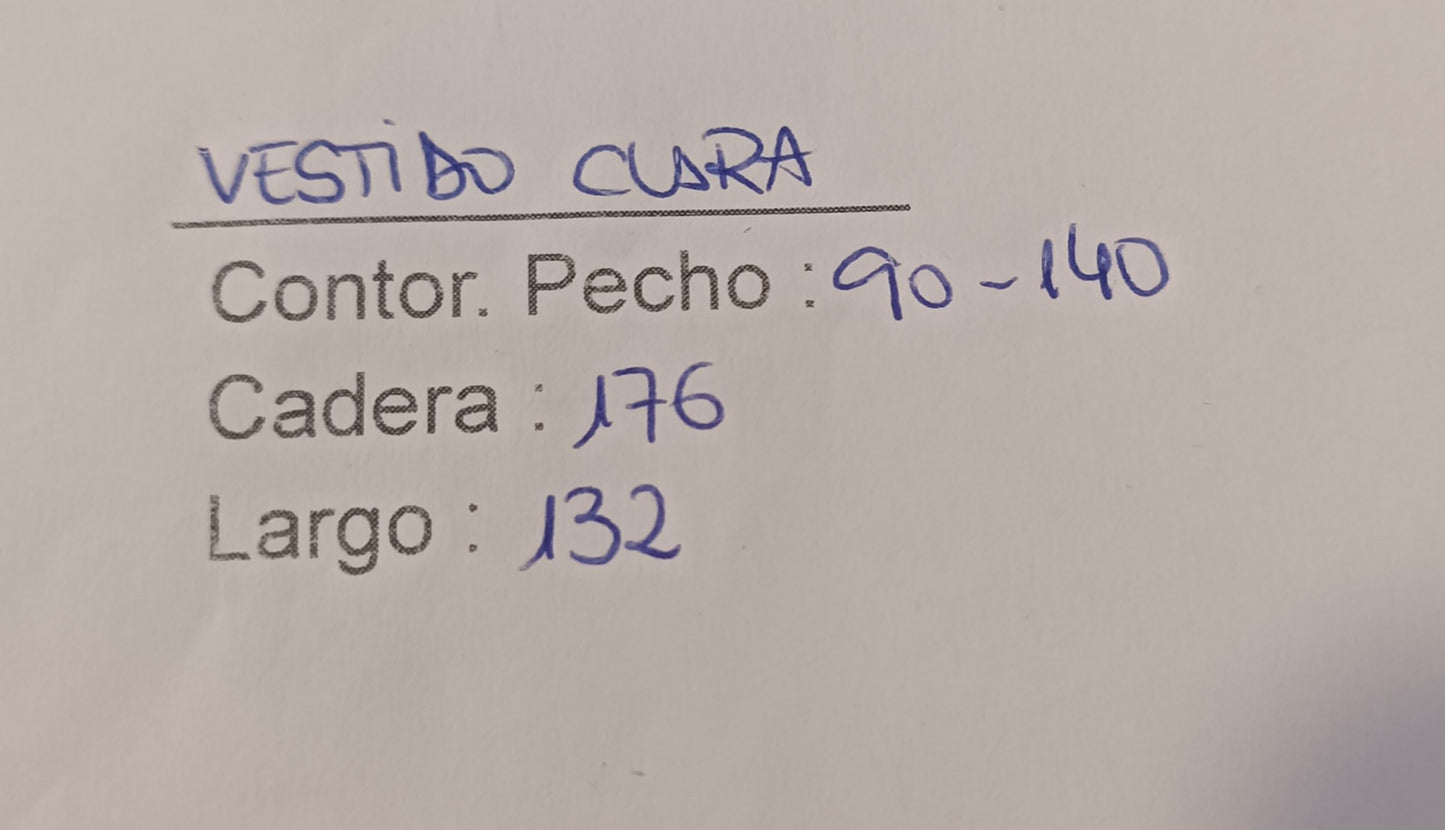 VESTIDO CLARA
Contor. Pecho : 90-140
Cadera : 176
Largo : 132